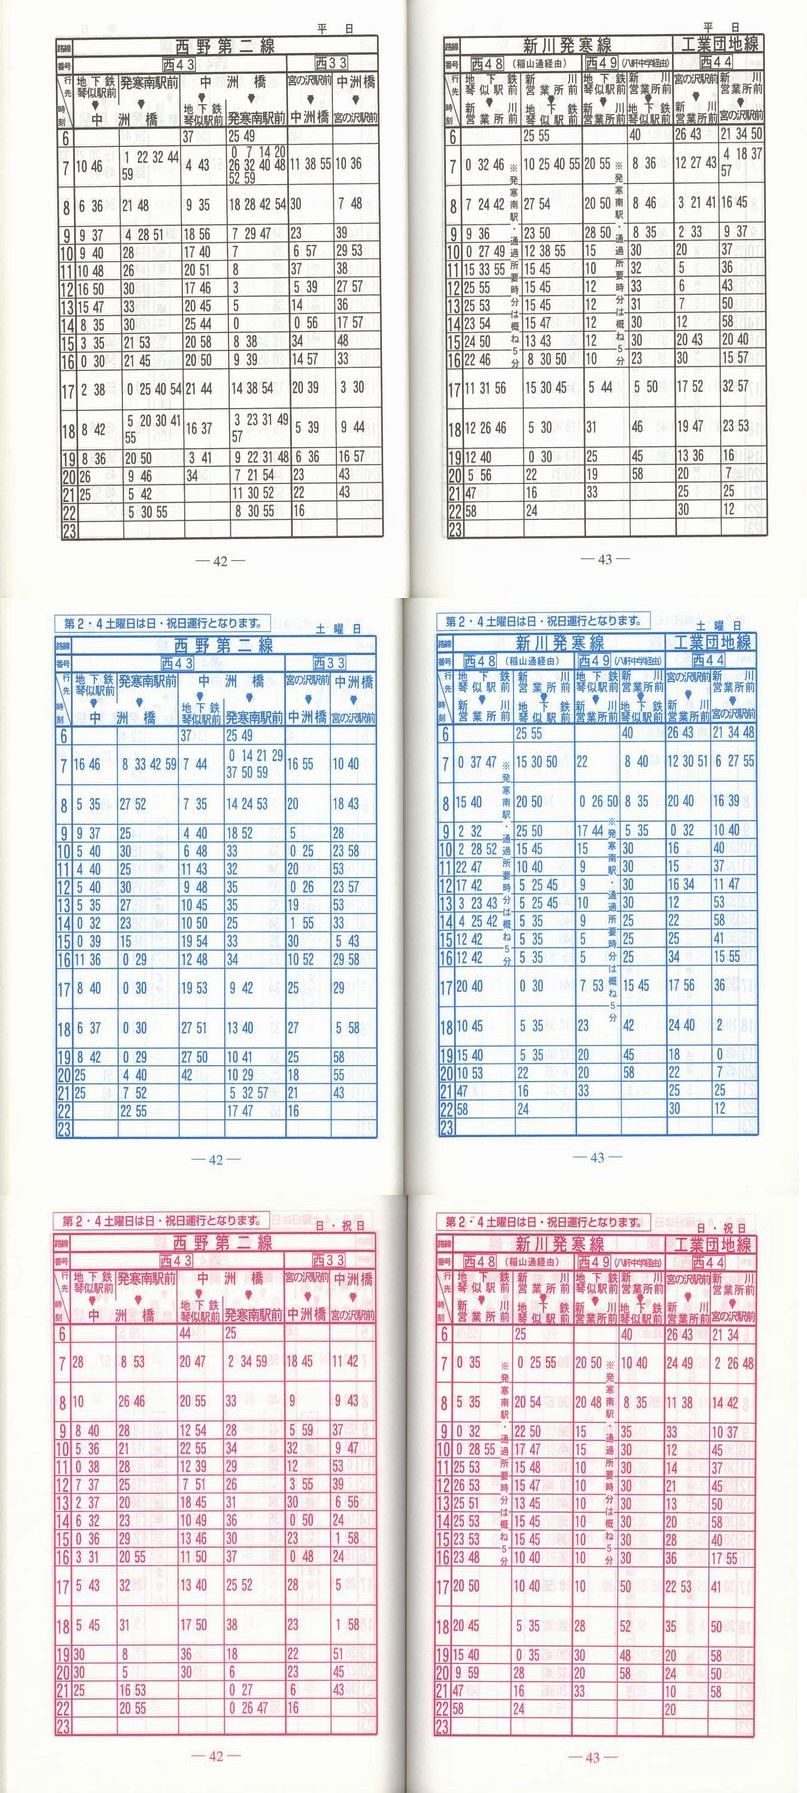 平 日
路線 西野第二線
番号 西43 西33
行先 地下鉄琴似駅前 発寒南駅前 中洲橋 宮の沢駅前 中洲橋
時刻 中洲橋 地下鉄琴似駅前 発寒南駅前 中洲橋 宮の沢駅前
6 37 25 49
7 10 46 1 22 32 44 59 4 43 0 7 14 20 26 32 40 48 52 59 11 38 55 10 36
8 6 36 21 48 9 35 18 28 42 54 30 7 48
9 9 37 4 28 51 18 56 7 29 47 23 39
10 9 40 28 17 40 7 6 57 29 53
11 10 48 26 20 51 8 37 38
12 16 50 30 17 46 3 5 39 27 57
13 15 47 33 20 45 5 14 36
14 8 35 30 25 44 0 0 56 17 57
15 3 35 21 53 20 58 8 38 34 48
16 0 30 21 45 20 50 9 39 14 57 33
17 2 38 0 25 40 54 21 44 14 38 54 20 39 3 30
18 8 42 5 20 30 41 55 16 37 3 23 31 49 57 5 39 9 44
19 8 36 20 50 3 41 9 22 31 48 6 36 16 57
20 26 9 46 34 7 21 54 23 43
21 25 5 42 11 30 52 22 43
22 5 30 55 8 30 55 16
23
— 42 —
平 日
路線 新川発寒線 工業団地線
番号 西48 (稲山通経由) 西49 (八軒中学経由) 西44
行先 地下鉄琴似駅前 新川営業所前 地下鉄琴似駅前 新川営業所前 宮の沢駅前 新川営業所前
時刻 新川営業所前 地下鉄琴似駅前 新川営業所前 地下鉄琴似駅前 新川営業所前 宮の沢駅前
6 25 55 40 26 43 21 34 50
7 0 32 46 10 25 40 55 20 55 8 36 12 27 43 4 18 37 57
8 7 24 42 27 54 20 50 8 46 3 21 41 16 45
9 9 36 23 50 28 50 8 35 2 33 9 37
10 0 27 49 12 38 55 15 30 20 37
11 15 33 55 15 45 10 32 5 36
12 25 55 15 45 12 33 6 43
13 25 53 15 45 12 31 7 50
14 23 54 15 47 12 30 12 58
15 24 50 13 43 12 30 20 43 20 40
16 22 46 8 30 50 10 23 30 15 57
17 11 31 56 15 30 45 5 44 5 50 17 52 32 57
18 12 26 46 5 30 31 46 19 47 23 53
19 12 40 0 30 25 45 13 36 16
20 5 56 22 19 58 20 7
21 47 16 33 25 25
22 58 24 30 12
23
※発寒南駅・通過所要時分は概ね5分
※発寒南駅・通過所要時分は概ね5分
— 43 —
第2・4土曜日は日・祝日運行となります。
土 曜 日
路線 西野第二線
番号 西43 西33
行先 地下鉄琴似駅前 発寒南駅前 中洲橋 宮の沢駅前 中洲橋
時刻 中洲橋 地下鉄琴似駅前 発寒南駅前 中洲橋 宮の沢駅前
6 37 25 49
7 16 46 8 33 42 59 7 44 0 14 21 29 37 50 59 16 55 10 40
8 5 35 27 52 7 35 14 24 53 20 18 43
9 9 37 25 4 40 18 52 5 28
10 5 40 30 6 48 33 0 25 23 58
11 4 40 25 11 43 32 20 53
12 5 40 30 9 48 35 0 26 23 57
13 5 35 27 10 45 35 19 53
14 0 32 23 10 50 25 1 55 33
15 0 39 15 19 54 33 30 5 43
16 11 36 0 29 12 48 34 10 52 29 58
17 8 40 0 30 19 53 9 42 25 29
18 6 37 0 30 27 51 13 40 27 5 58
19 8 42 0 29 27 50 10 41 25 58
20 25 4 40 42 10 29 18 55
21 25 7 52 5 32 57 21 43
22 22 55 17 47 16
23
— 42 —
第2・4土曜日は日・祝日運行となります。
土 曜 日
路線 新川発寒線 工業団地線
番号 西48 (稲山通経由) 西49 (八軒中学経由) 西44
行先 地下鉄琴似駅前 新川営業所前 地下鉄琴似駅前 新川営業所前 宮の沢駅前 新川営業所前
時刻 新川営業所前 地下鉄琴似駅前 新川営業所前 地下鉄琴似駅前 新川営業所前 宮の沢駅前
6 25 55 40 26 43 21 34 48
7 0 37 47 15 30 50 22 8 40 12 30 51 6 27 55
8 15 40 20 50 0 26 50 8 35 20 40 16 39
9 2 32 25 50 17 44 5 35 0 32 10 40
10 2 28 52 15 45 15 30 16 40
11 22 47 10 40 9 30 15 37
12 17 42 5 25 45 9 30 16 34 11 47
13 3 23 43 5 25 45 10 30 12 53
14 4 25 42 5 35 9 25 22 58
15 12 42 5 35 5 25 25 41
16 12 42 5 35 5 25 34 15 55
17 20 40 0 30 7 53 15 45 17 56 36
18 10 45 5 35 23 42 24 40 2
19 15 40 5 35 20 45 18 0
20 10 53 22 20 58 22 7
21 47 16 33 25 25
22 58 24 30 12
23
※発寒南駅・通過所要時分は概ね5分
※発寒南駅・通過所要時分は概ね5分
— 43 —
第2・4土曜日は日・祝日運行となります。
日・祝日
路線 西野第二線
番号 西43 西33
行先 地下鉄琴似駅前 発寒南駅前 中洲橋 宮の沢駅前 中洲橋
時刻 中洲橋 地下鉄琴似駅前 発寒南駅前 中洲橋 宮の沢駅前
6 44 25
7 28 8 53 20 47 2 34 59 18 45 11 42
8 10 26 46 20 55 33 9 9 43
9 8 40 28 12 54 28 5 59 37
10 5 36 21 22 55 34 32 9 47
11 0 38 28 12 39 29 12 53
12 7 37 25 7 51 26 3 55 39
13 2 37 20 18 45 31 30 6 56
14 6 32 23 10 49 36 0 50 24
15 0 36 29 13 46 30 23 1 58
16 3 31 20 55 11 50 37 0 48 24
17 5 43 32 13 40 25 52 28 5
18 5 45 31 17 50 38 23 1 58
19 30 8 36 18 22 51
20 30 5 30 6 23 45
21 25 16 53 0 27 6 43
22 20 55 0 26 47 16
23
— 42 —
第2・4土曜日は日・祝日運行となります。
日・祝日
路線 新川発寒線 工業団地線
番号 西48 (稲山通経由) 西49 (八軒中学経由) 西44
行先 地下鉄琴似駅前 新川営業所前 地下鉄琴似駅前 新川営業所前 宮の沢駅前 新川営業所前
時刻 新川営業所前 地下鉄琴似駅前 新川営業所前 地下鉄琴似駅前 新川営業所前 宮の沢駅前
6 25 40 26 43 21 34
7 0 35 0 25 55 20 50 10 40 24 49 2 26 48
8 5 35 20 54 20 48 8 35 11 38 14 42
9 0 32 22 50 15 35 33 10 37
10 0 28 55 17 47 15 30 12 45
11 25 53 15 48 10 30 14 37
12 26 53 15 47 10 30 21 45
13 25 51 13 45 10 30 13 50
14 25 53 15 45 10 30 20 58
15 23 53 15 45 10 30 28 40
16 23 48 10 40 10 30 36 17 55
17 20 50 10 40 10 50 22 53 41
18 20 45 5 35 28 52 35 50
19 15 40 0 35 30 48 20 58
20 9 59 28 20 58 24 50
21 47 16 33 10 58
22 58 24 20
23
※発寒南駅・通過所要時分は概ね5分
※発寒南駅・通過所要時分は概ね5分
— 43 —